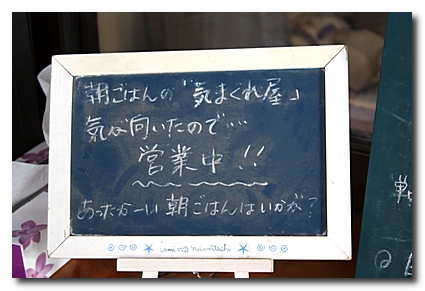 朝ごはんの「気まぐれ屋」
気が向いたので…
営業中!!
あったか〜い朝ごはんはいかが?